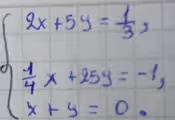 2x + 5y = 1/3,
1/4 x + 25y = -1,
x + y = 0.